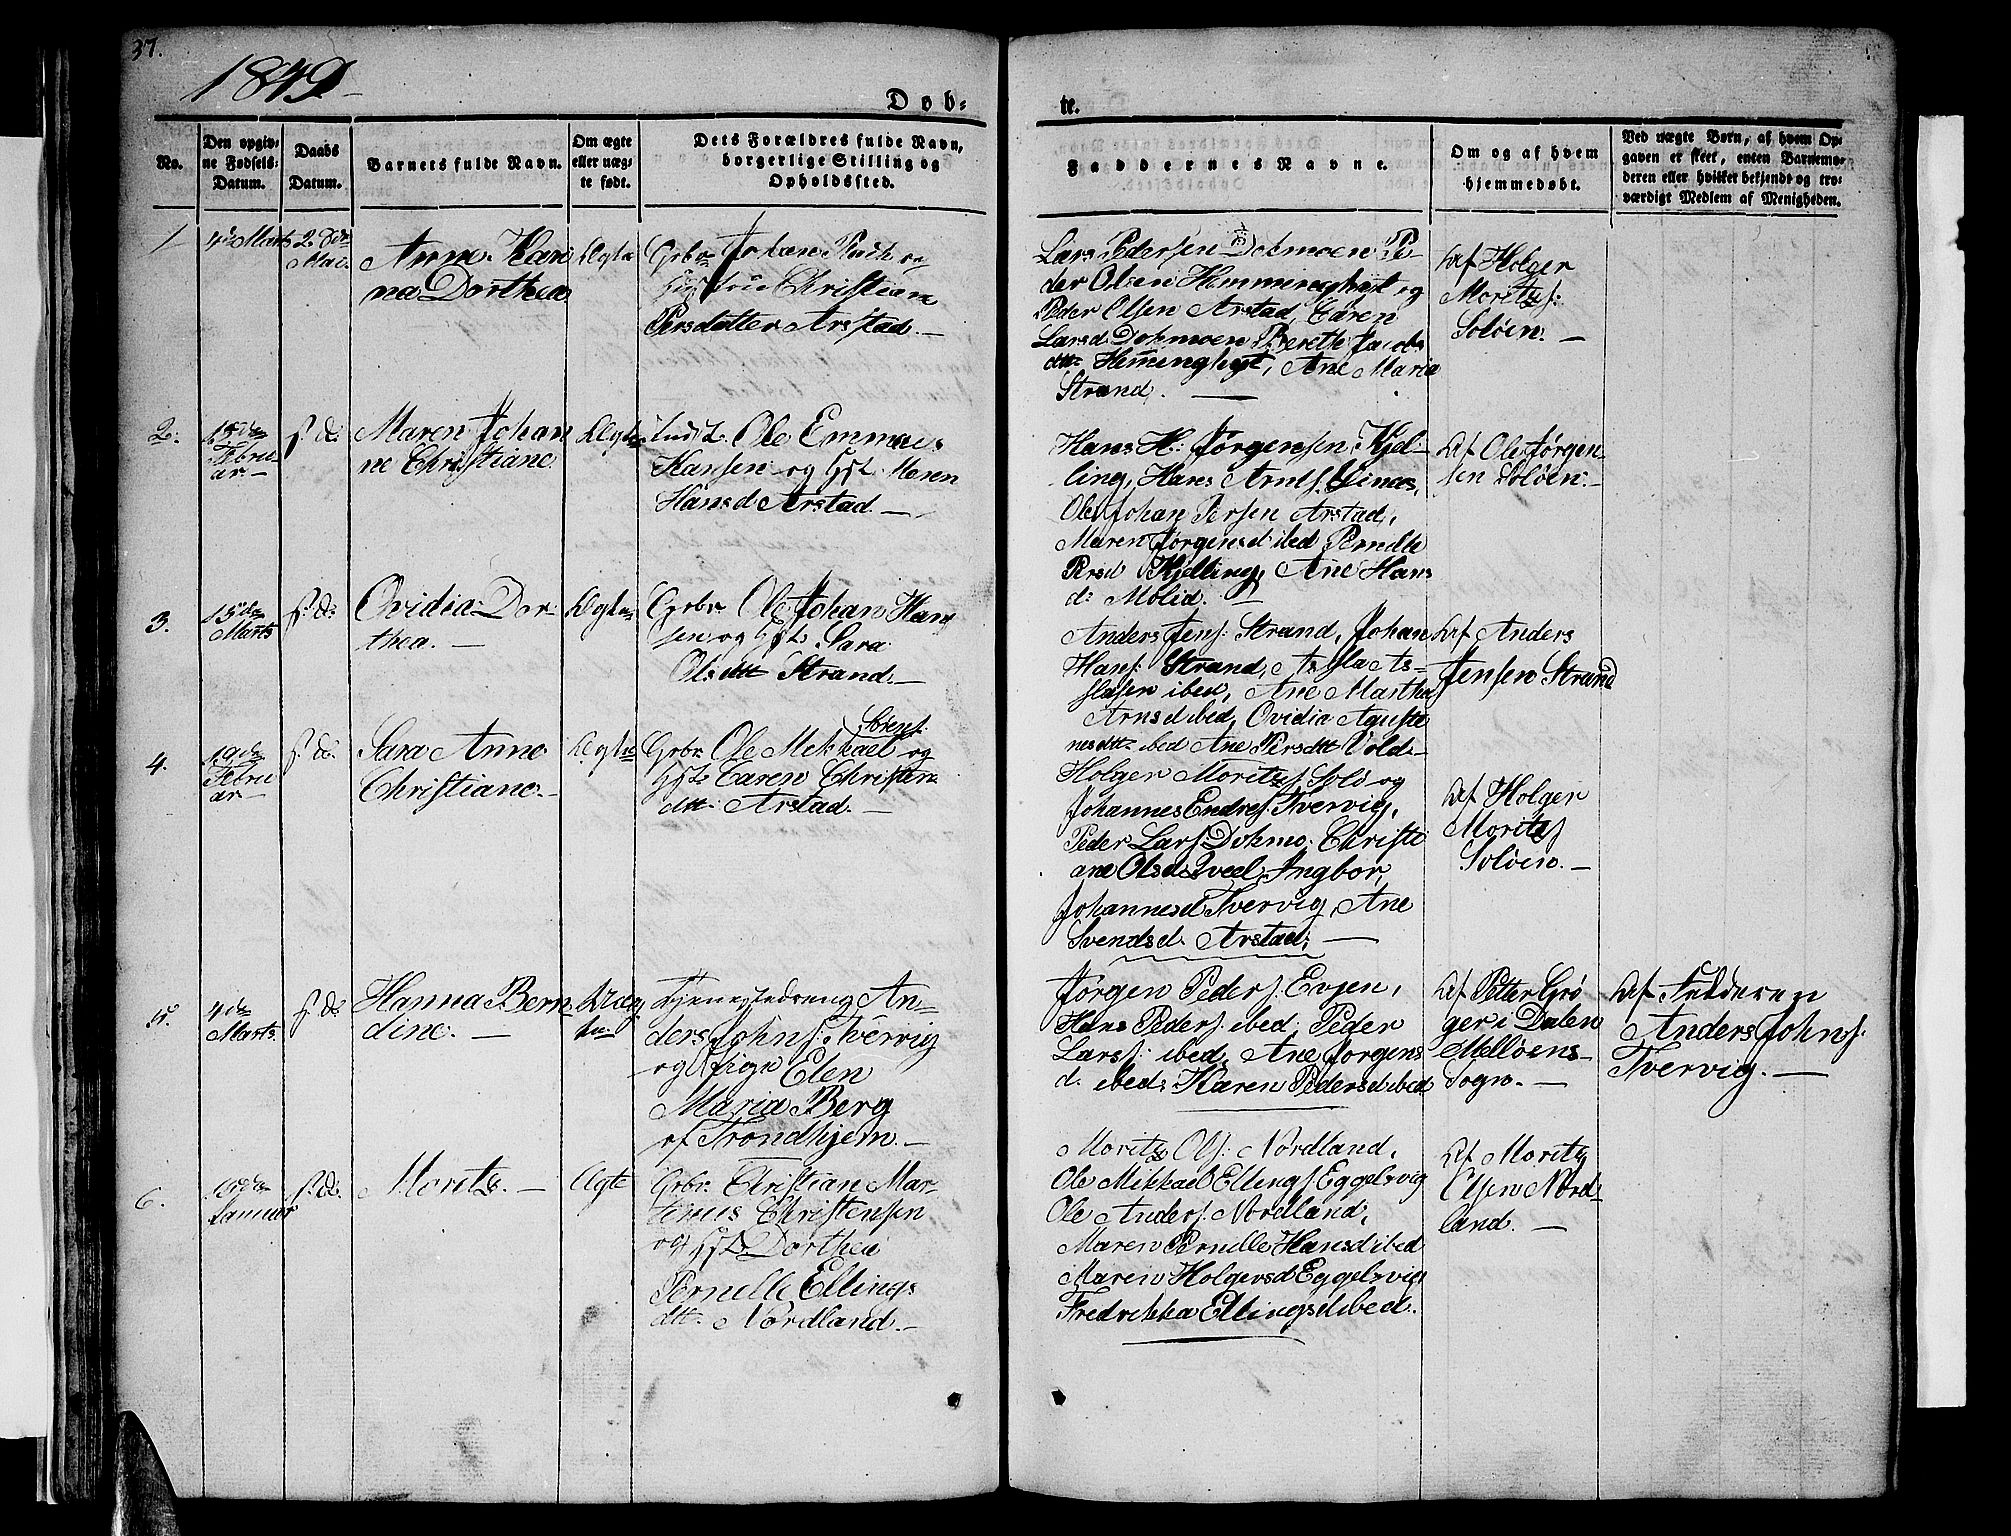 37.
1849
Døb-
te.
No.
Den opgiv-
ne Fødsels-
Datum.
Daabs
Datum.
Barnets fulde Navn.
Om ægte
eller uæg-
te født.
Dets Forældres fulde Navn,
borgerlige Stilling og
Opholdssted.
Faddernes Navne.
Om og af hvem
hjemmedøbt.
Ved uægte Børn, af hvem Op-
gaven er skeet, enten Barnemo-
deren eller hvilket bekjendt og tro-
værdigt Medlem af Menigheden.
1
4de Marts
2den
Mai
Anne Kari
na Dorthea
Ægte
Grbr Johan Pasch og
Hustrue Christiane
Persdatter Arstad. —
Lars Pedersen Dokmoen Pe-
der Olsen Hemminghyt og
Peder Olsen Arstad, Caren
Larsd Dokmoen Bereth Jacobs
dttr Hemminghyt, Ane Maria
Strand. —
Af Holger
Moritzs:
Soløen. —
2.
Febru
ar —
s. d.
Maren Johan
ne Christiane
Ægte
Indst. Ole Emmaus
Hansen og Hst. Maren
Hansd Arstad —
Hans H: Jørgensen Kjel-
ling, Hans Arnts.
Ole Johan Persen Arstad,
Maren Jørgensd ibed Pernelle
Persd Kjelling, Ane Hans
d: Mölid. —
Af Ole Jørgen-
sen Soløen. —
3.
15de
Marts
s. d:
Ovidia Dor-
thea. —
Ægte
Grbr Ole Johan Han
sen og Hst. Sara
Olsdtt Strand. —
Anders Jens: Strand, Johan
Hans: Strand, Asla As-
lasen ibed, Ane Martha
Arnsd ibed, Ovidia Aguste
nesdttr ibed Ane Persdtt Vold —
Af Anders
Jensen Strand
4.
19de
Febru
ar —
s. d.
Sara Anne
Christiane. —
Ægte
Sørens:
Grbr Ole Mikkael og
Hst: Caren Christen
dtt: Arstad. —
Holger Moritzs Solø og
Johannes Endres Tvervig,
Peder Lars Dokmo, Christi
ane Olsd Qveel, Ingbor,
Johannesd Tvervig, Ane
Svendsd. Arstad. —
Af Holger
Moritzs
Soløen. —
5.
4de
Marts
s. d:
Hanna Bern
dine. —
Uæg
te
Tjenestedreng An-
ders Johns: Tvervig
og Pige Elen
Maria Berg
af Trondhjem. —
Jørgen Peders: Evjen,
Hans Peders: ibed, Peder
Larss: ibed, Ane Jørgens
d: ibed, Karen Pedersd ibed
Af Petter Grø
ger i Dalen
Melløens-
Sogn. —
Af Faderen
Anders Johns.
Tvervig. —
6.
Januar
s. d.
Moritz. —
Ægte
Grbr. Christian Mar-
tinus Christensen
og Hst Dorthea
Pernelle Ellings
dtt. Nordland. —
Moritz Ols: Nordland,
Ole Mikkael Ellings Eggesvig
Ole Anders. Nordland,
Maren Pernelle Hansd ibed
Maren Holgersd Eggesvig
Fredrikka Ellingsd ibed.
Af Moritz
Olsen Nord-
land. —